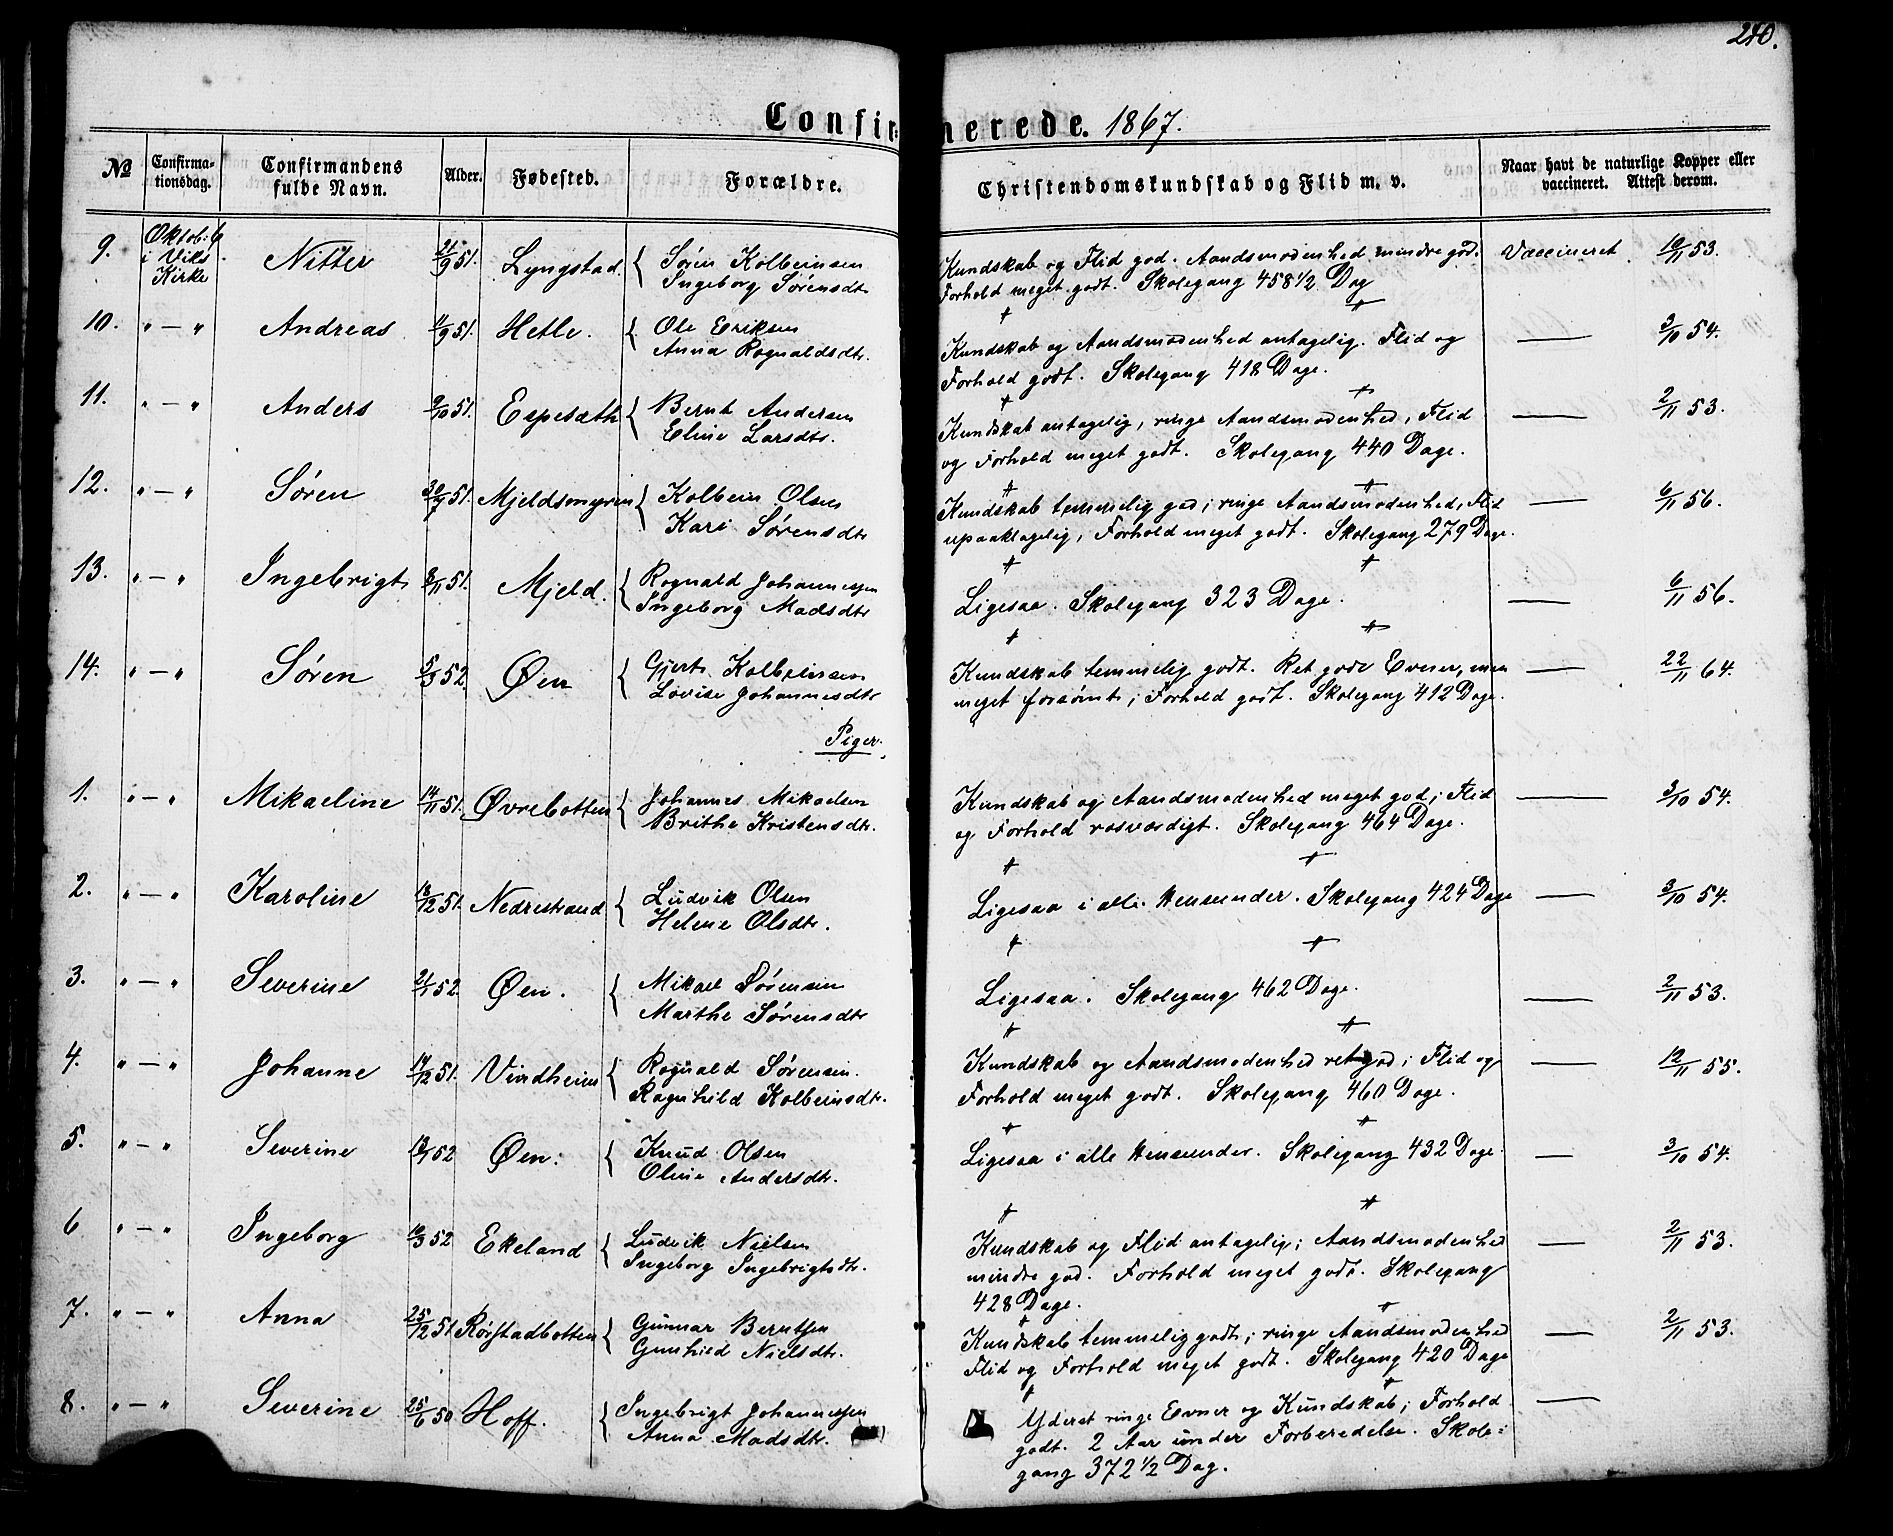 240.
Confirmerede. 1867.
№ Confirma-tionsdag. Confirmandens fulde Navn. Alder. Fødested. Forældre. Christendomskundskab og Flid m. v. Naar havt de naturlige Kopper eller vaccineret. Attest derom.
9. Oktob: 6 i Viks Kirke Nitter 21/9 51. Lyngstad. { Søren Kolbeinsen
Ingeborg Sørensdtr
Kundskab og Flid god. Aandsmodenhed mindre god. Vaccineret 10/11 53.
Forhold meget godt. Skolegang 458 1/2 Dag
10. " — " Andreas 11/9 51. Hetle. { Ole Eriksen
Anna Rognaldsdtr.
Kundskab og Aandsmodenhed antagelig. Flid og — 3/10 54.
Forhold godt. Skolegang 418 Dage.
11. " — " Anders 9/10 51. Espesæth { Bernt Andersen
Eline Larsdtr.
Kundskab antagelig, ringe Aandsmodenhed, Flid — 2/11 53.
og Forhold meget godt. Skolegang 440 Dage.
12. " — " Søren 30/7 51. Mjeldsmyren { Kolbein Olsen
Kari Sørensdtr
Kundskab temmelig god; ringe Aandsmodenhed, Flid — 6/11 56.
upaaklagelig, Forhold meget godt. Skolegang 279 Dage.
13. " — " Ingebrigt 8/11 51. Mjeld. { Rognald Johannessen
Ingeborg Madsdtr
Ligesaa. Skolegang 323 Dage. — 6/11 56.
14. " — " Søren 5/3 52. Øen { Gjert Kolbeinsen
Lovise Johannesdtr
Kundskab temmelig godt. Ret gode Evner, men — 22/11 64.
meget forsømt; Forhold godt. Skolegang 412 Dage.
Piger.
1. " — " Mikaeline 14/11 51. Øvrebotten { Johannes Mikaelsen
Brithe Kristensdtr.
Kundskab og Aandsmodenhed meget god; Flid — 3/10 54.
og Forhold rosværdigt. Skolegang 464 Dage.
2. " — " Karoline 18/12 51. Nedrestrand { Ludvik Olsen
Helene Olsdtr.
Ligesaa i alle Henseender. Skolegang 424 Dage — 3/10 54.
3. " — " Severine 21/1 52 Øen. { Mikael Sørensen
Marthe Sørensdtr
Ligesaa. Skolegang 462 Dage. — 2/11 53.
4. " — " Johanne 14/12 51. Vindheim { Rognald Sørensen.
Ragnhild Kolbeinsdtr.
Kundskab og Aandsmodenhed ret god; Flid og — 12/11 55.
Forhold meget godt. Skolegang 460 Dage.
5. " — " Severine 13/1 52 Øen. { Knud Olsen
Oline Andersdtr.
Ligesaa i alle Henseender. Skolegang 432 Dage. — 3/10 54.
6 " — " Ingeborg 10/3 52 Ekeland { Ludvik Nielsen
Ingeborg Ingebrigtsdtr.
Kundskab og Flid antagelig; Aandsmodenhed — 2/11 53.
mindre god. Forhold meget godt. Skolegang
428 Dage.
7. " — " Anna 25/12 51 Rørstadbotten { Gunnar Berntsen
Gunhild Nielsdtr.
Kundskab temmelig godt; ringe Aandsmodenhed — 2/11 53.
Flid og Forhold meget godt. Skolegang 420 Dage
8. " — " Severine 25/6 50 Hoff. { Ingebrigt Johannessen
Anna Madsdtr.
Yderst ringe Evner og Kundskab; Forhold —
godt. 2 Aar under Forberedelse. Skole:
gang 372 1/2 Dag.